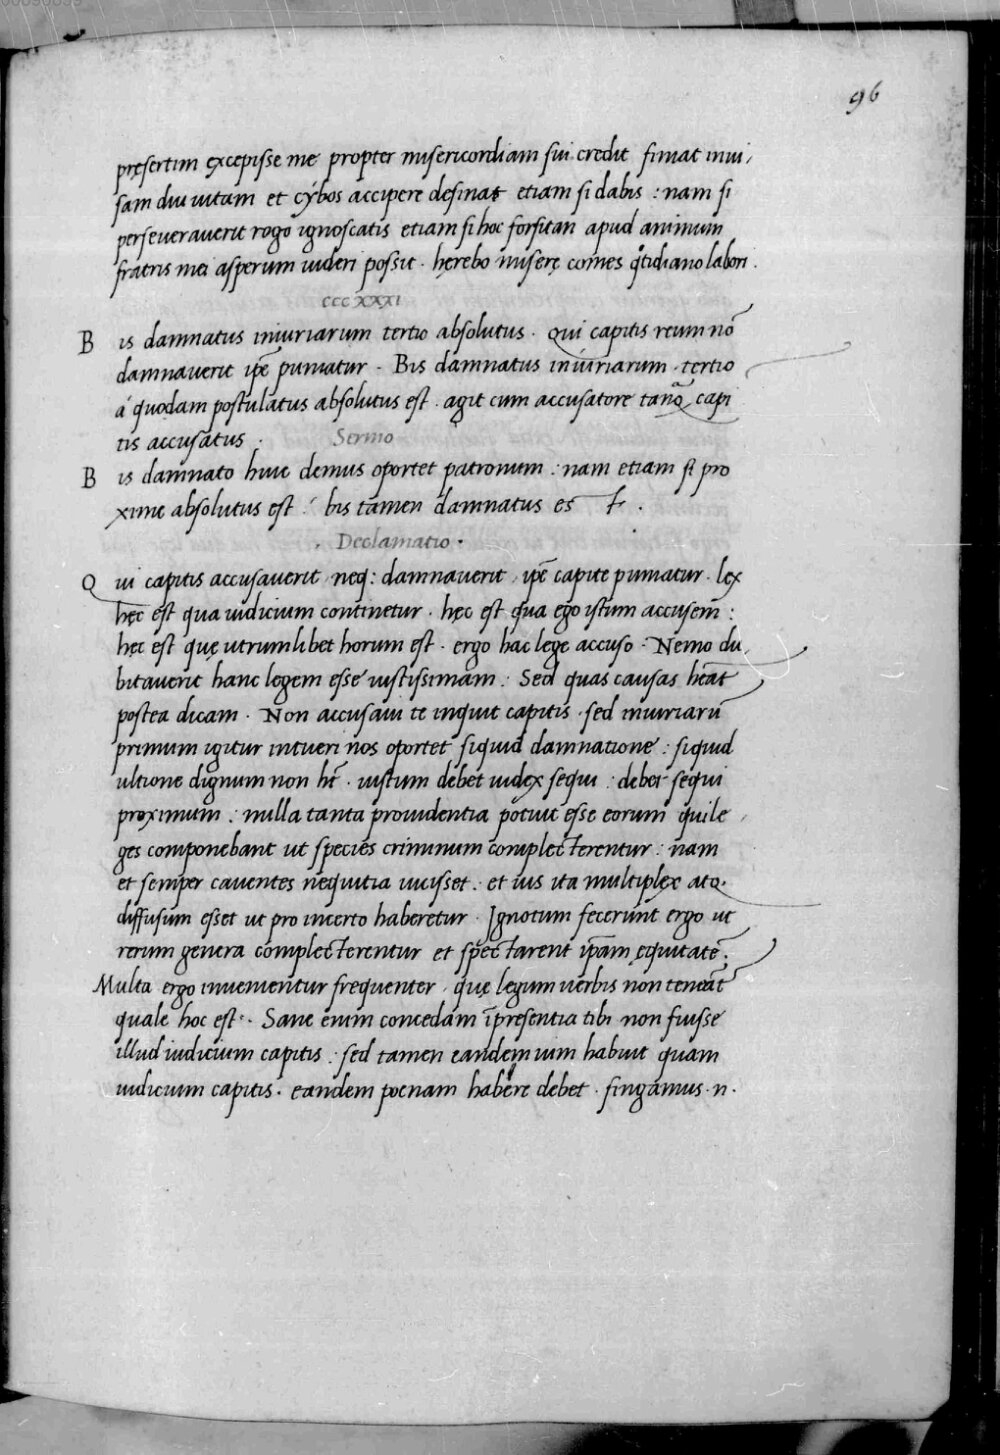 96
pręsertim excepisse me propter misericordiam sui credit finiat inui,
sam diu uitam et cybos accipere desinat etiam si dabis : nam si
perseuerauerit rogo ignoscatis etiam si hoc forsitan apud animum
fratris mei asperum uideri possit . hęrebo miserę comes qͦtidiano labori .
cccxxxi
Bis damnatus iniuriarum tertio absolutus . Qui capitis reum nō
damnauerit ip̄e puniatur . Bis damnatus iniuriarum . tertio
á quodam postulatus absolutus est . agit cum accusatore tanq̄ capi
tis accusatus . Sermo
Bis damnato huic demus oportet patronum : nam etiam si pro
xime absolutus est : bis tamen damnatus es t .
. Declamatio .
Qui capitis accusauerit neq: damnauerit ip̄e capite puniatur . lex
hęc est qua iudicium continetur . hęc est qua ego istum accusem :
hęc est quę utrumlibet horum est . ergo hac lege accuso . Nemo du,
bitauerit hanc legem esse iustissimam . Sed quas causas hēat
postea dicam . Non accusaui te inquit capitis . sed iniuriarū
primum igitur intueri nos oportet siquid damnatione : siquid
ultione dignum non ht̄ . iustum debet iudex sequi : debet sequi
proximum : nulla tanta prouidentia potuit esse eorum qui le
ges componebant ut species criminum complecterentur : nam
et semper cauentes nequitia uicisset . et ius ita multiplex atq.
diffusum esset ut pro incerto haberetur . Ignotum fecerunt ergo ut
rerum genera complecterentur et spectarent ip̄am ęquitatē .
Multa ergo inuenientur frequenter . quę legum uerbis non teneāt
quale hoc est . Sane enim concedam īpresentia tibi non fuisse
illud iudicium capitis . sed tamen eandem uim habuit quam
iudicium capitis . eandem poenam habere debet . fingamus . n .